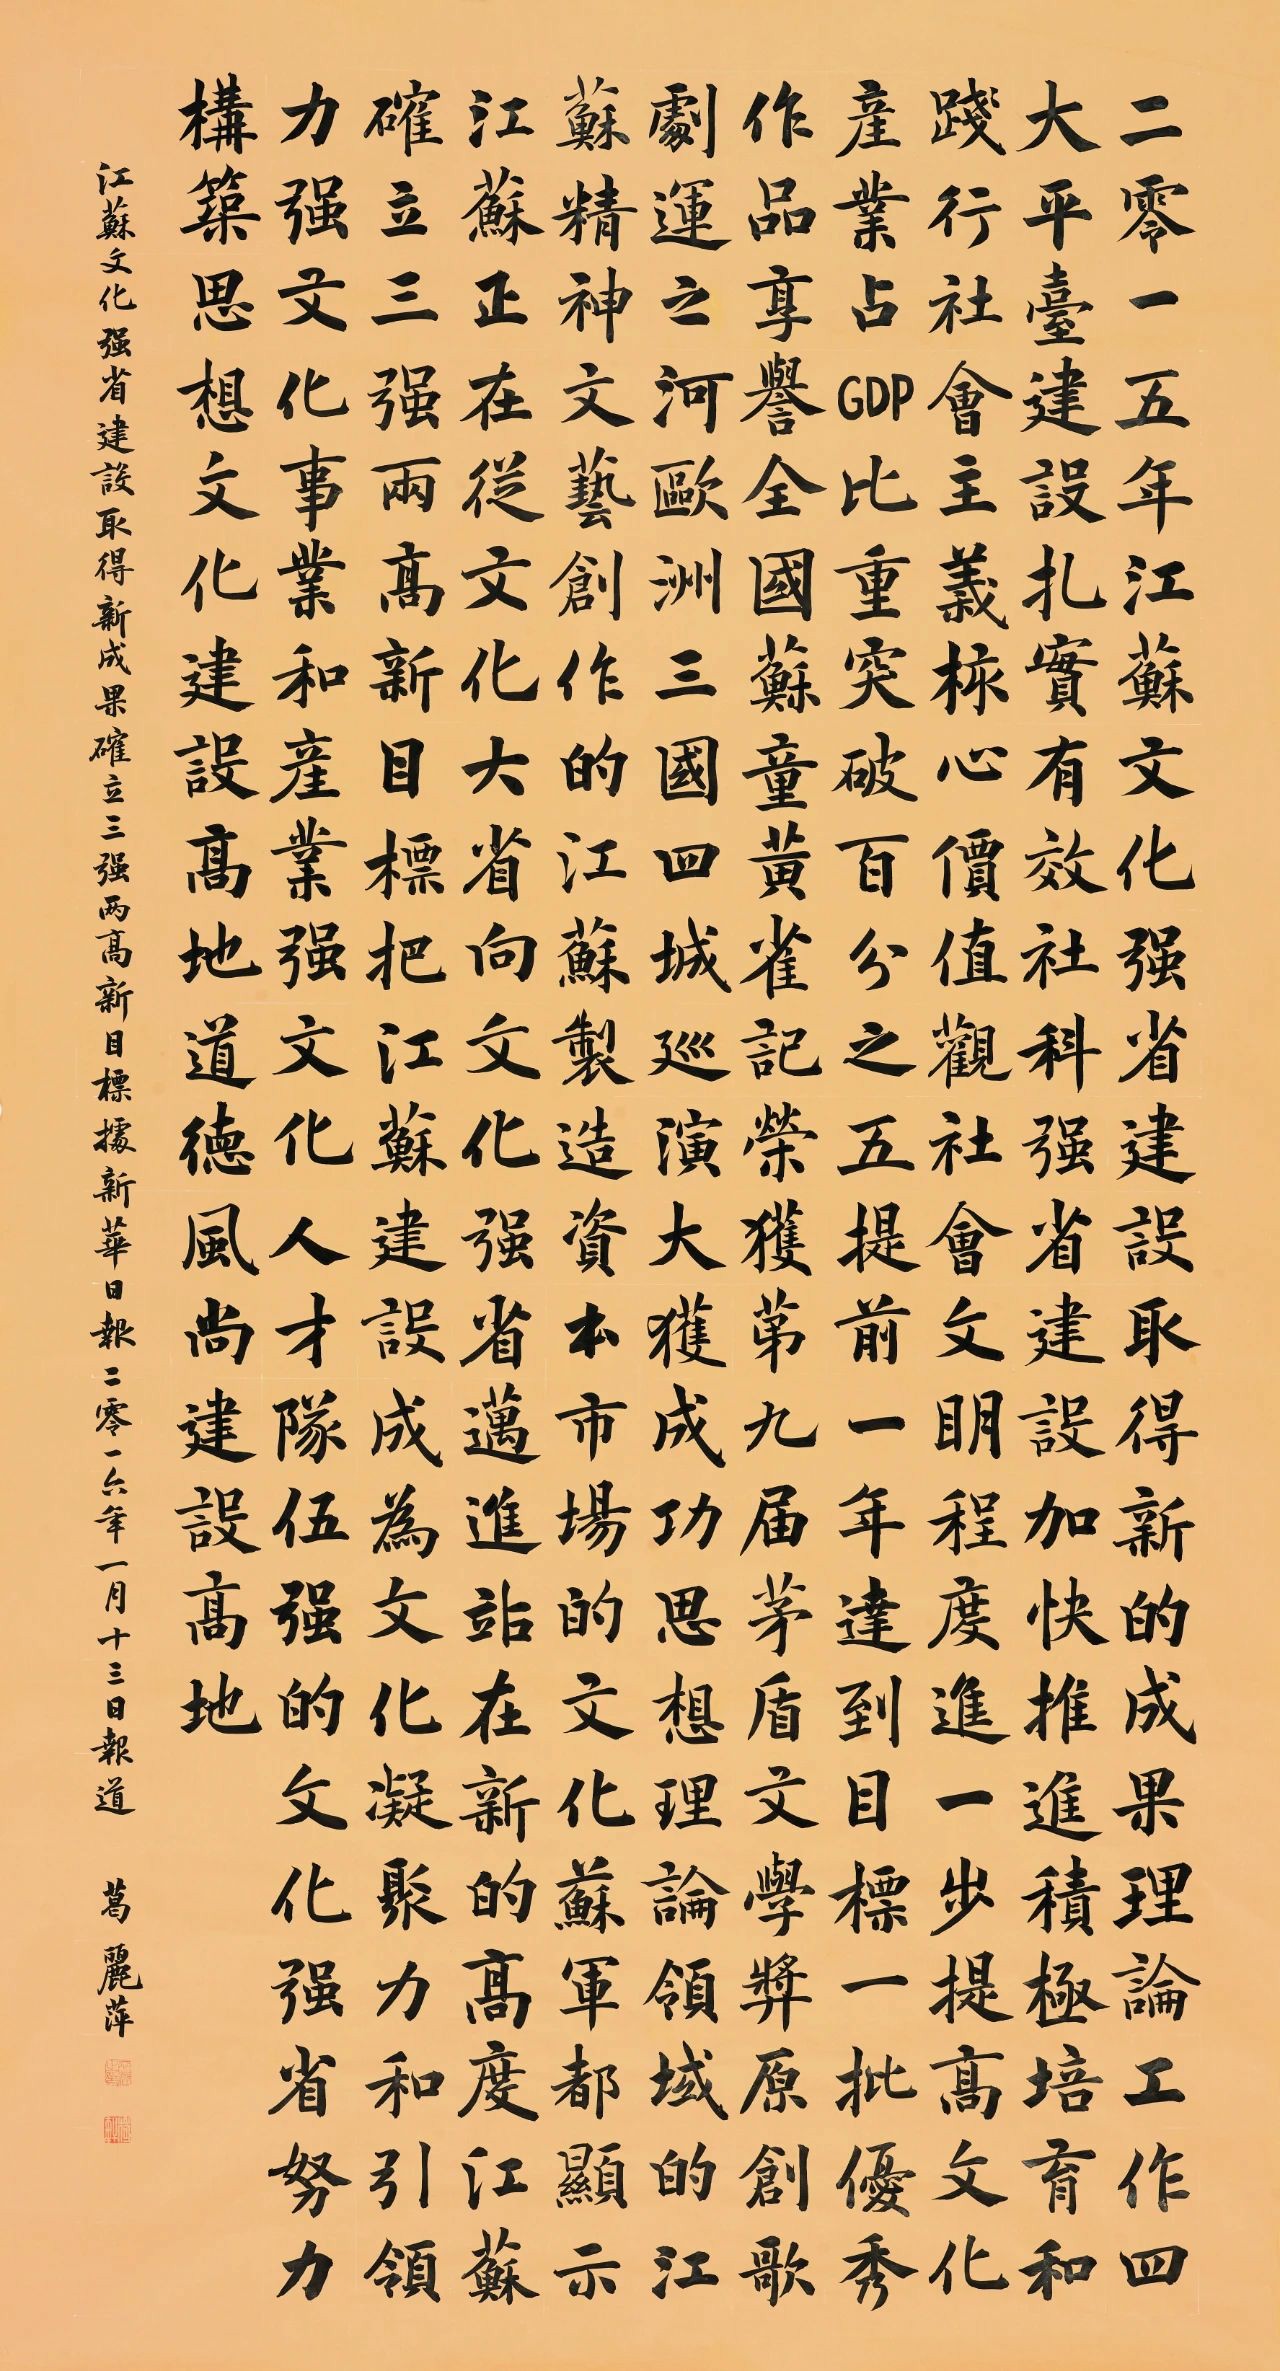 二零一五年江蘇文化强省建設取得新的成果理論工作四
大平臺建設扎實有效社科强省建設加快推進積極培育和
踐行社會主義核心價值觀社會文明程度進一步提高文化
產業占GDP比重突破百分之五提前一年達到目標一批優秀
作品享譽全國蘇童黄雀記榮獲第九届茅盾文學獎原創歌
劇運之河歐洲三國四城巡演大獲成功思想理論領域的江
蘇精神文藝創作的江蘇製造資本市場的文化蘇軍都顯示
江蘇正在從文化大省向文化强省邁進站在新的高度江蘇
確立三强兩高新目標把江蘇建設成為文化凝聚力和引領
力强文化事業和產業强文化人才隊伍强的文化强省努力
構築思想文化建設高地道德風尚建設高地
江蘇文化强省建設取得新成果確立三强两高新目標據新華日報二零一六年一月十三日報道 葛麗萍